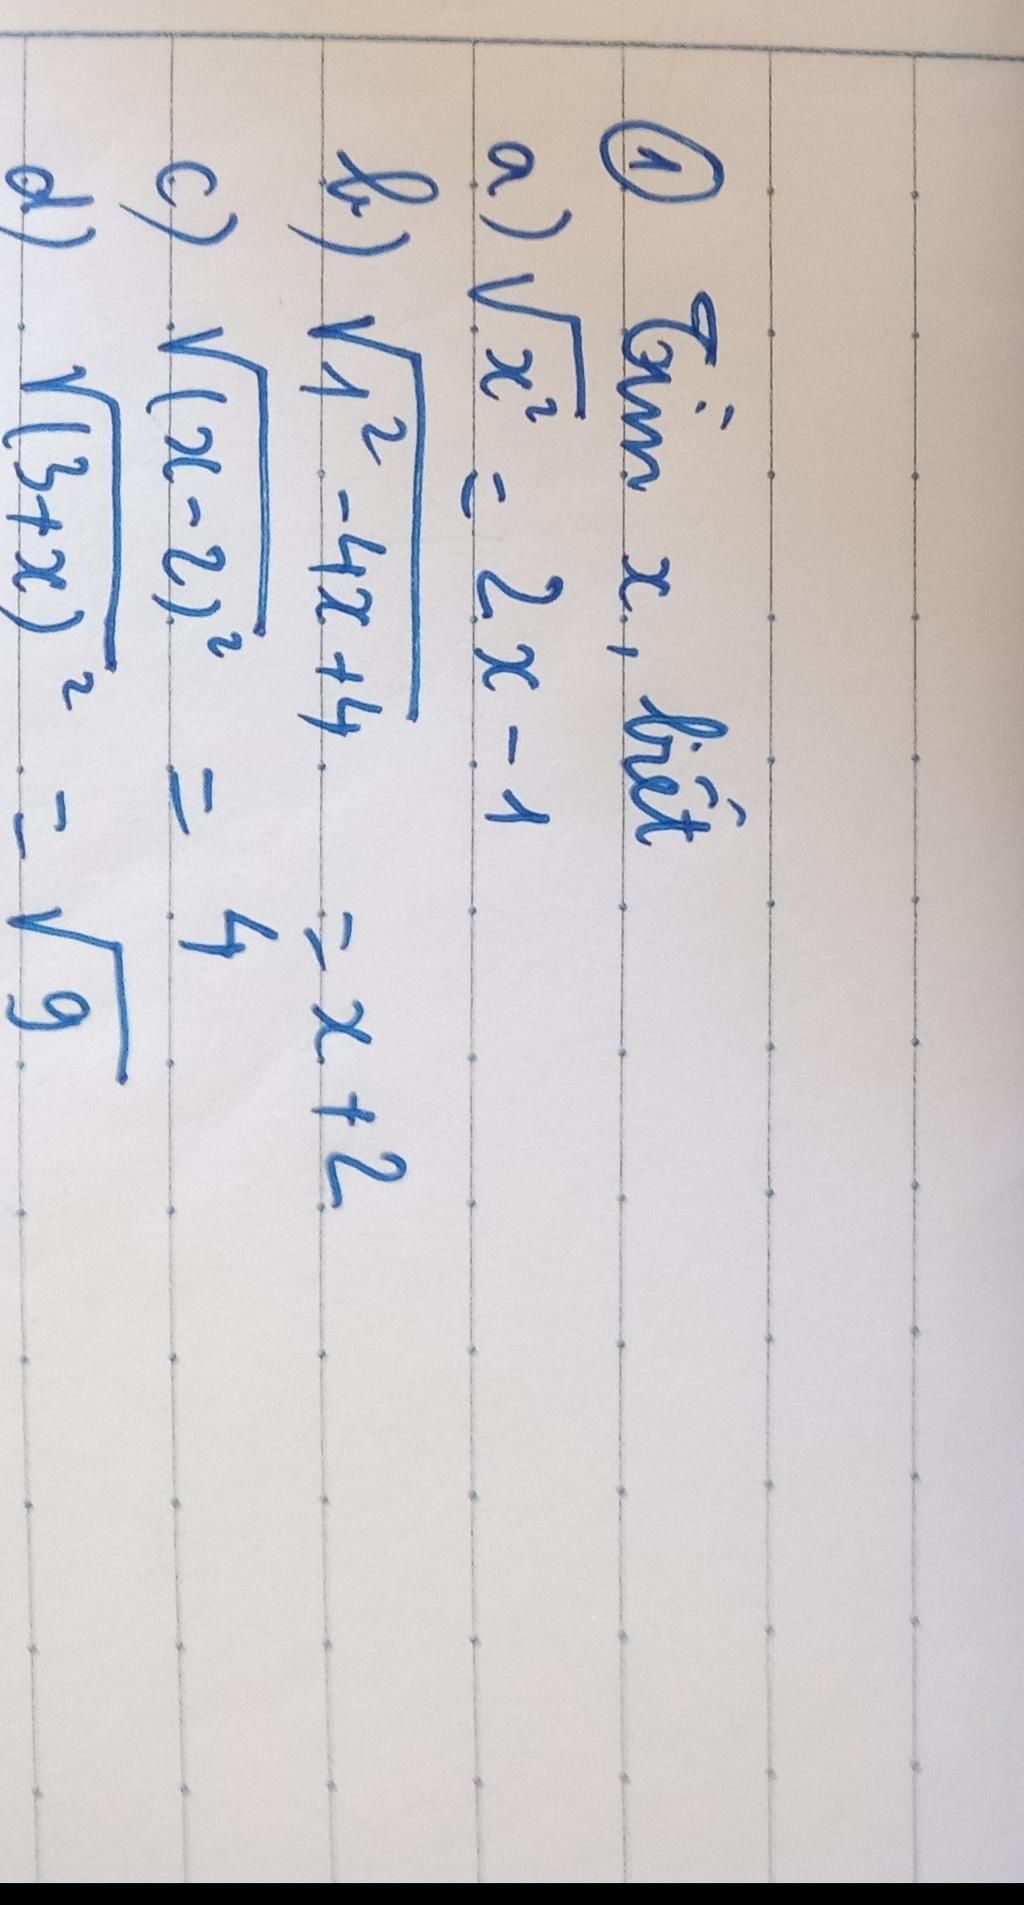 ① Tìm x, biết
a) √x² = 2x - 1
b) √1² - 4x + 4 = x + 2
c) √(x - 2)² = 4
d) √(3 + x)² = √9